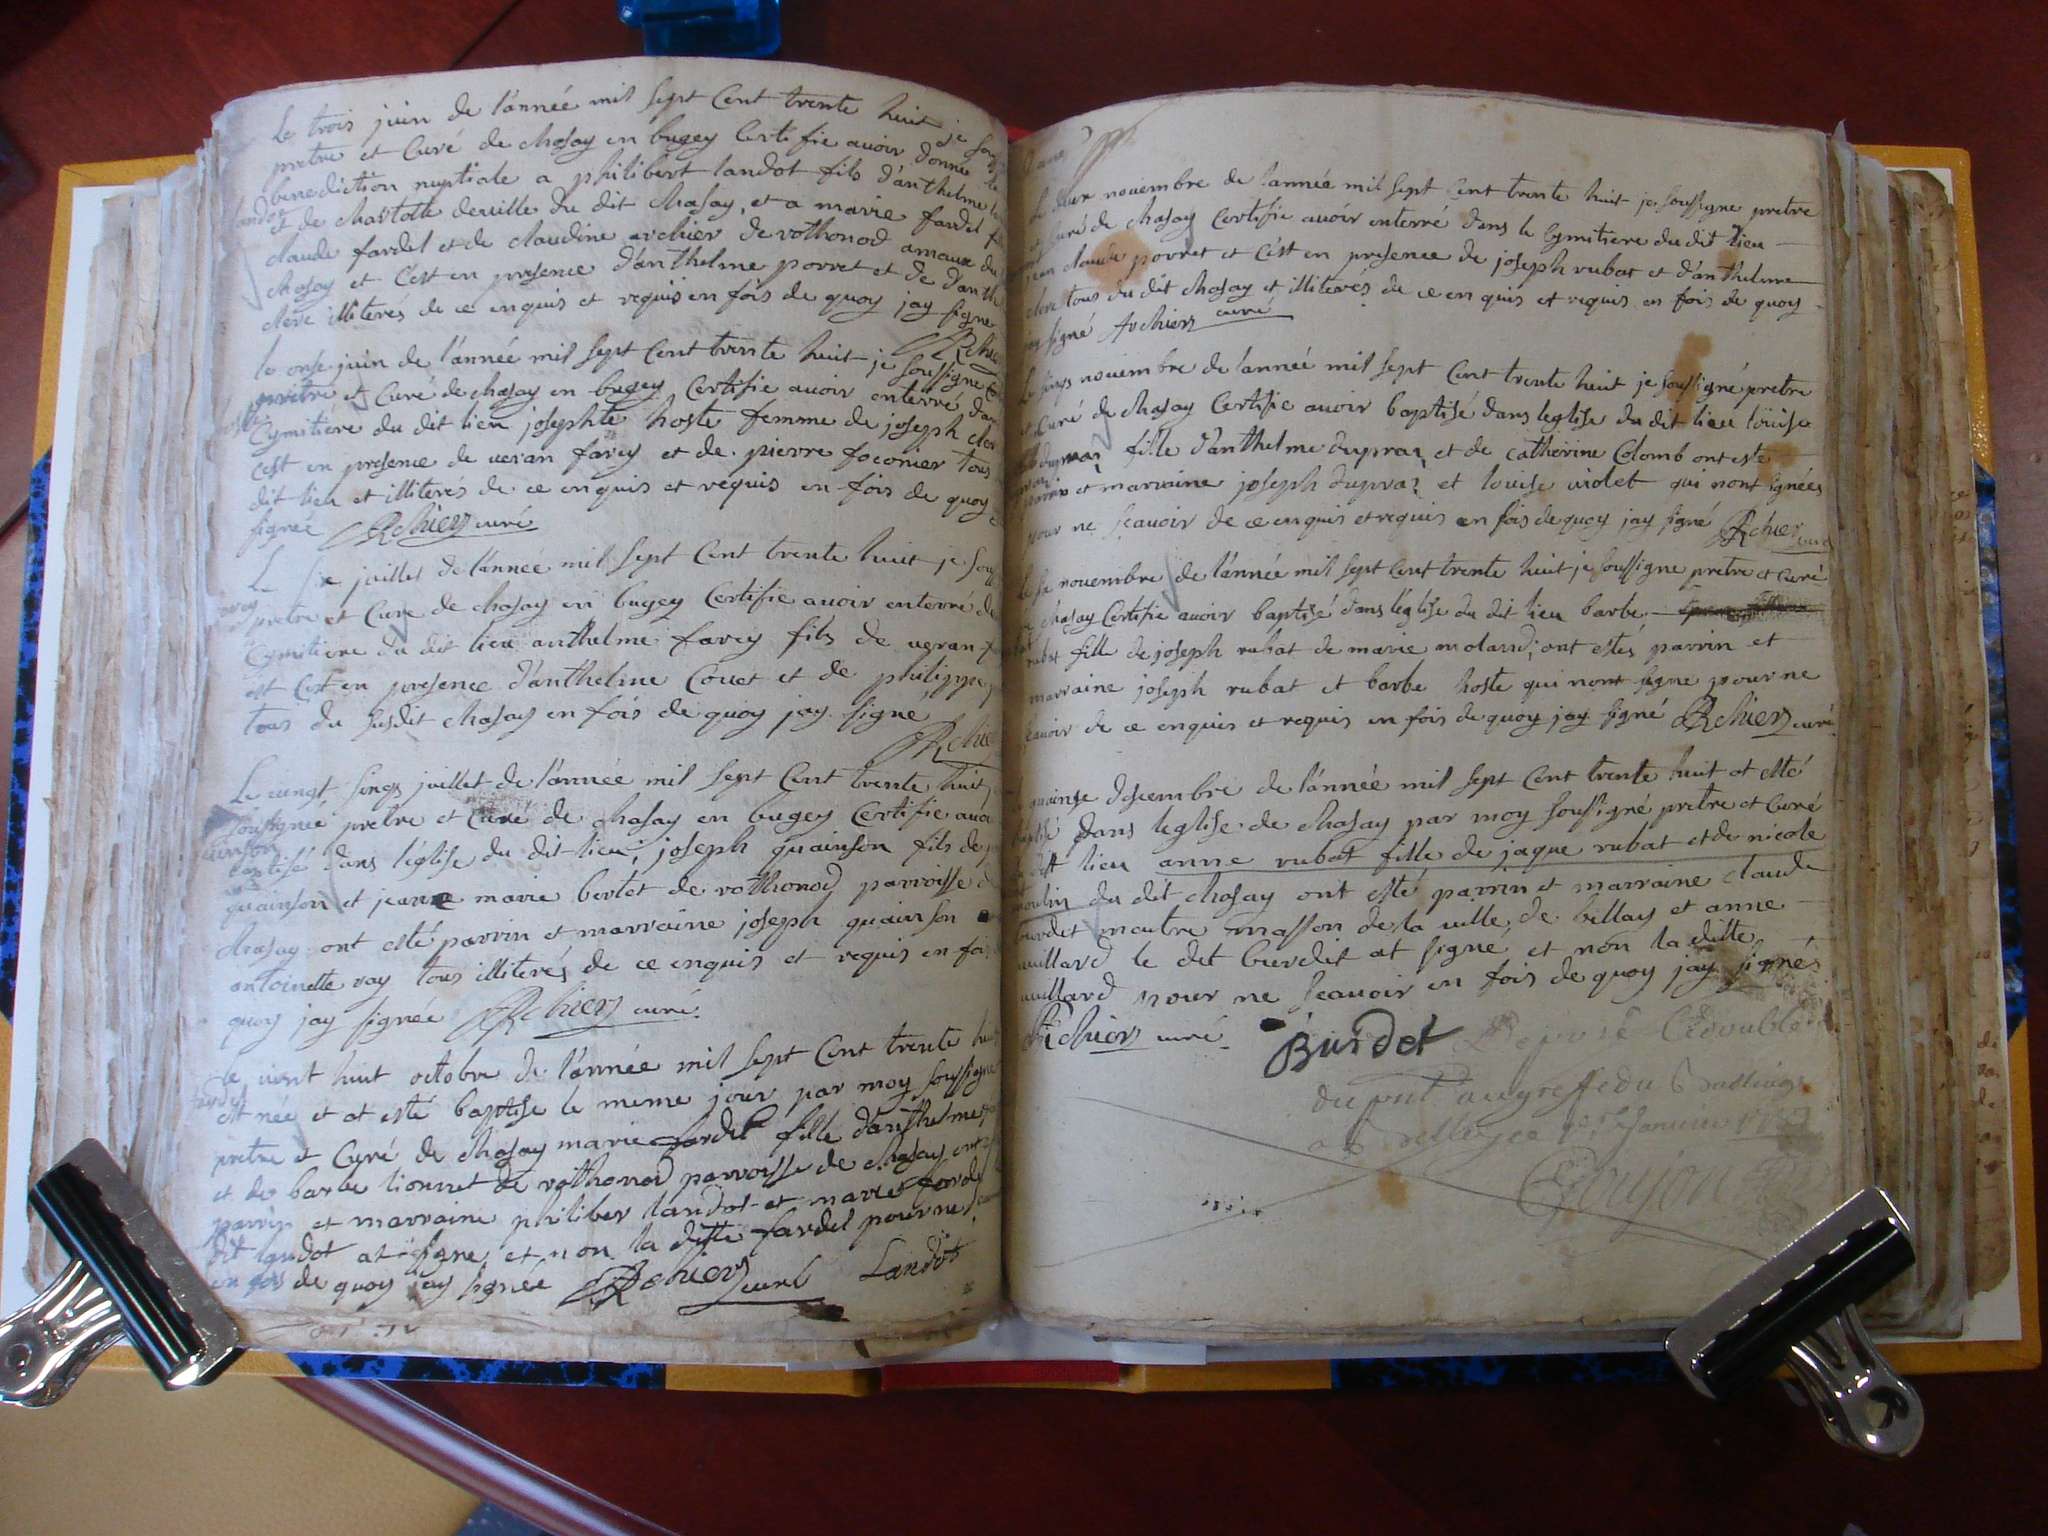 Le trois juin de l'année mil sept Cent trente huit je
pretre et Curé de chasay en bugey Certifie avoir donné la
benediction nuptiale a philibert landot fils d'anthelme
landot et de charlotte deville du dit chasay, et a marie fardel
claude fardel et de claudine archier de rothonod amaux du
chasay et c'est en presence d'anthelme porret et de d'anth
clere illiterés de ce enquis et requis en fois de quoy jay signe
Archier
le onse juin de l'année mil sept Cent trente huit je soussigne
pretre et Curé de chasay en bugey Certifie avoir enterré dans
Cymitiere du dit lieu josephte hoste femme de joseph
c'est en presence de veran farcy et de pierre foconier tous
dit lieu et illiterés de ce enquis et requis en fois de quoy
signée Archier curé
Le six juillet de l'année mil sept Cent trente huit je
pretre et Cure de chasay en bugey Certifie avoir enterré
Cymitiere du dit lieu anthelme farcy fils de veran
et C'est en presence d'anthelme Couet et de philippe
tous du susdit chasay en fois de quoy jay signe
Archier
Le vingt sings juillet de l'année mil sept Cent trente huit
soussignée pretre et Curé de chasay en bugey Certifie avoir
quinson
baptisé dans l'église du dit lieu, joseph quainson fils de
quainson et jeanne marie bertet de rothonod parroisse
chasay ont esté parrin et marraine joseph quainson
antoinette ray tous illiterés de ce enquis et requis en fois
quoy jay signée Archier curé
le vint huit octobre de l'année mil sept Cent trente huit
est née et at esté baptise le meme jour par moy soussigne
pretre et Curé de chasay marie fardel fille d'anthelme
et de barbe lionnet de rothonod parroisse de chasay ont
parrin et marraine philiber landot et marie fardel
dit landot at signe et non la ditte fardel pour ne
en fois de quoy jay signée Archier curé Landot
Le deux novembre de l'année mil sept Cent trente huit je soussigne pretre
et Curé de chasay Certifie avoir enterré dans le Cymitiere du dit lieu
jean claude porret et c'est en presence de joseph rubat et d'anthelme
clere tous du dit chasay et illiterés de ce en quis et requis en fois de quoy
jay signé Archier curé
Le sings novembre de l'année mil sept Cent trente huit je soussigné pretre
et Curé de chasay Certifie avoir baptisé dans leglise du dit lieu louise
dupraz fille d'anthelme dupraz et de catherine Colomb ont este
parrin et marraine joseph dupraz et louise violet qui nont signées
pour ne scavoir de ce enquis et requis en fois de quoy jay signé Archier curé
Le six novembre de l'année mil sept Cent trente huit je soussigne pretre et curé
de chasay Certifie avoir baptisé dans l'église du dit lieu barbe
rubat fille de joseph rubat de marie moland, ont estés parrin et
marraine joseph rubat et barbe hoste qui nont signe pour ne
scavoir de ce enquis et requis en fois de quoy jay signé Archier curé
quainse desembre de l'année mil sept Cent trente huit at esté
baptisé dans leglise de chasay par moy soussigné pretre et Curé
du dit lieu anne rubat fille de jaque rubat et de nicole
moulin du dit chasay ont esté parrin et marraine claude
burdet maitre masson de la ville de bellay et anne
vuillard le dit burdit at signé et non la ditte
vuillard pour ne scavoir en fois de quoy jay signés
Archier curé Burdet
Deposé Le double
du pnt au greffe du Bailliage
Goujon